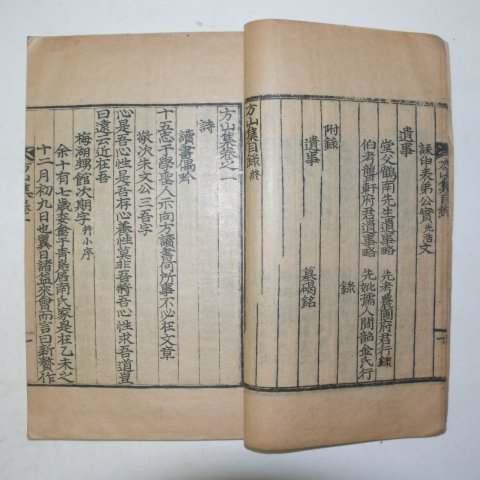 誄申表弟公實光浩文
遺事
堂父鶴南先生遺事略
先考農圃府君行錄
伯考聾軒府君遺事略
先妣孺人聞韶金氏行錄
附錄
遺事
墓碣銘
方山集目錄終
方山集卷之一
詩
讀書偶吟
十五志于學聖人示向方讀書何所事不必在文章
敬次朱文公三吾字
心是吾心性是吾存心養性莫非吾將吾心性求吾道豈
曰遠云近在吾
梅湖甥館次期字幷小序
余十有七歲委禽于青鳧居南氏家是在乙未之
十二月初九日也翼日諸益來會而言曰新贅作